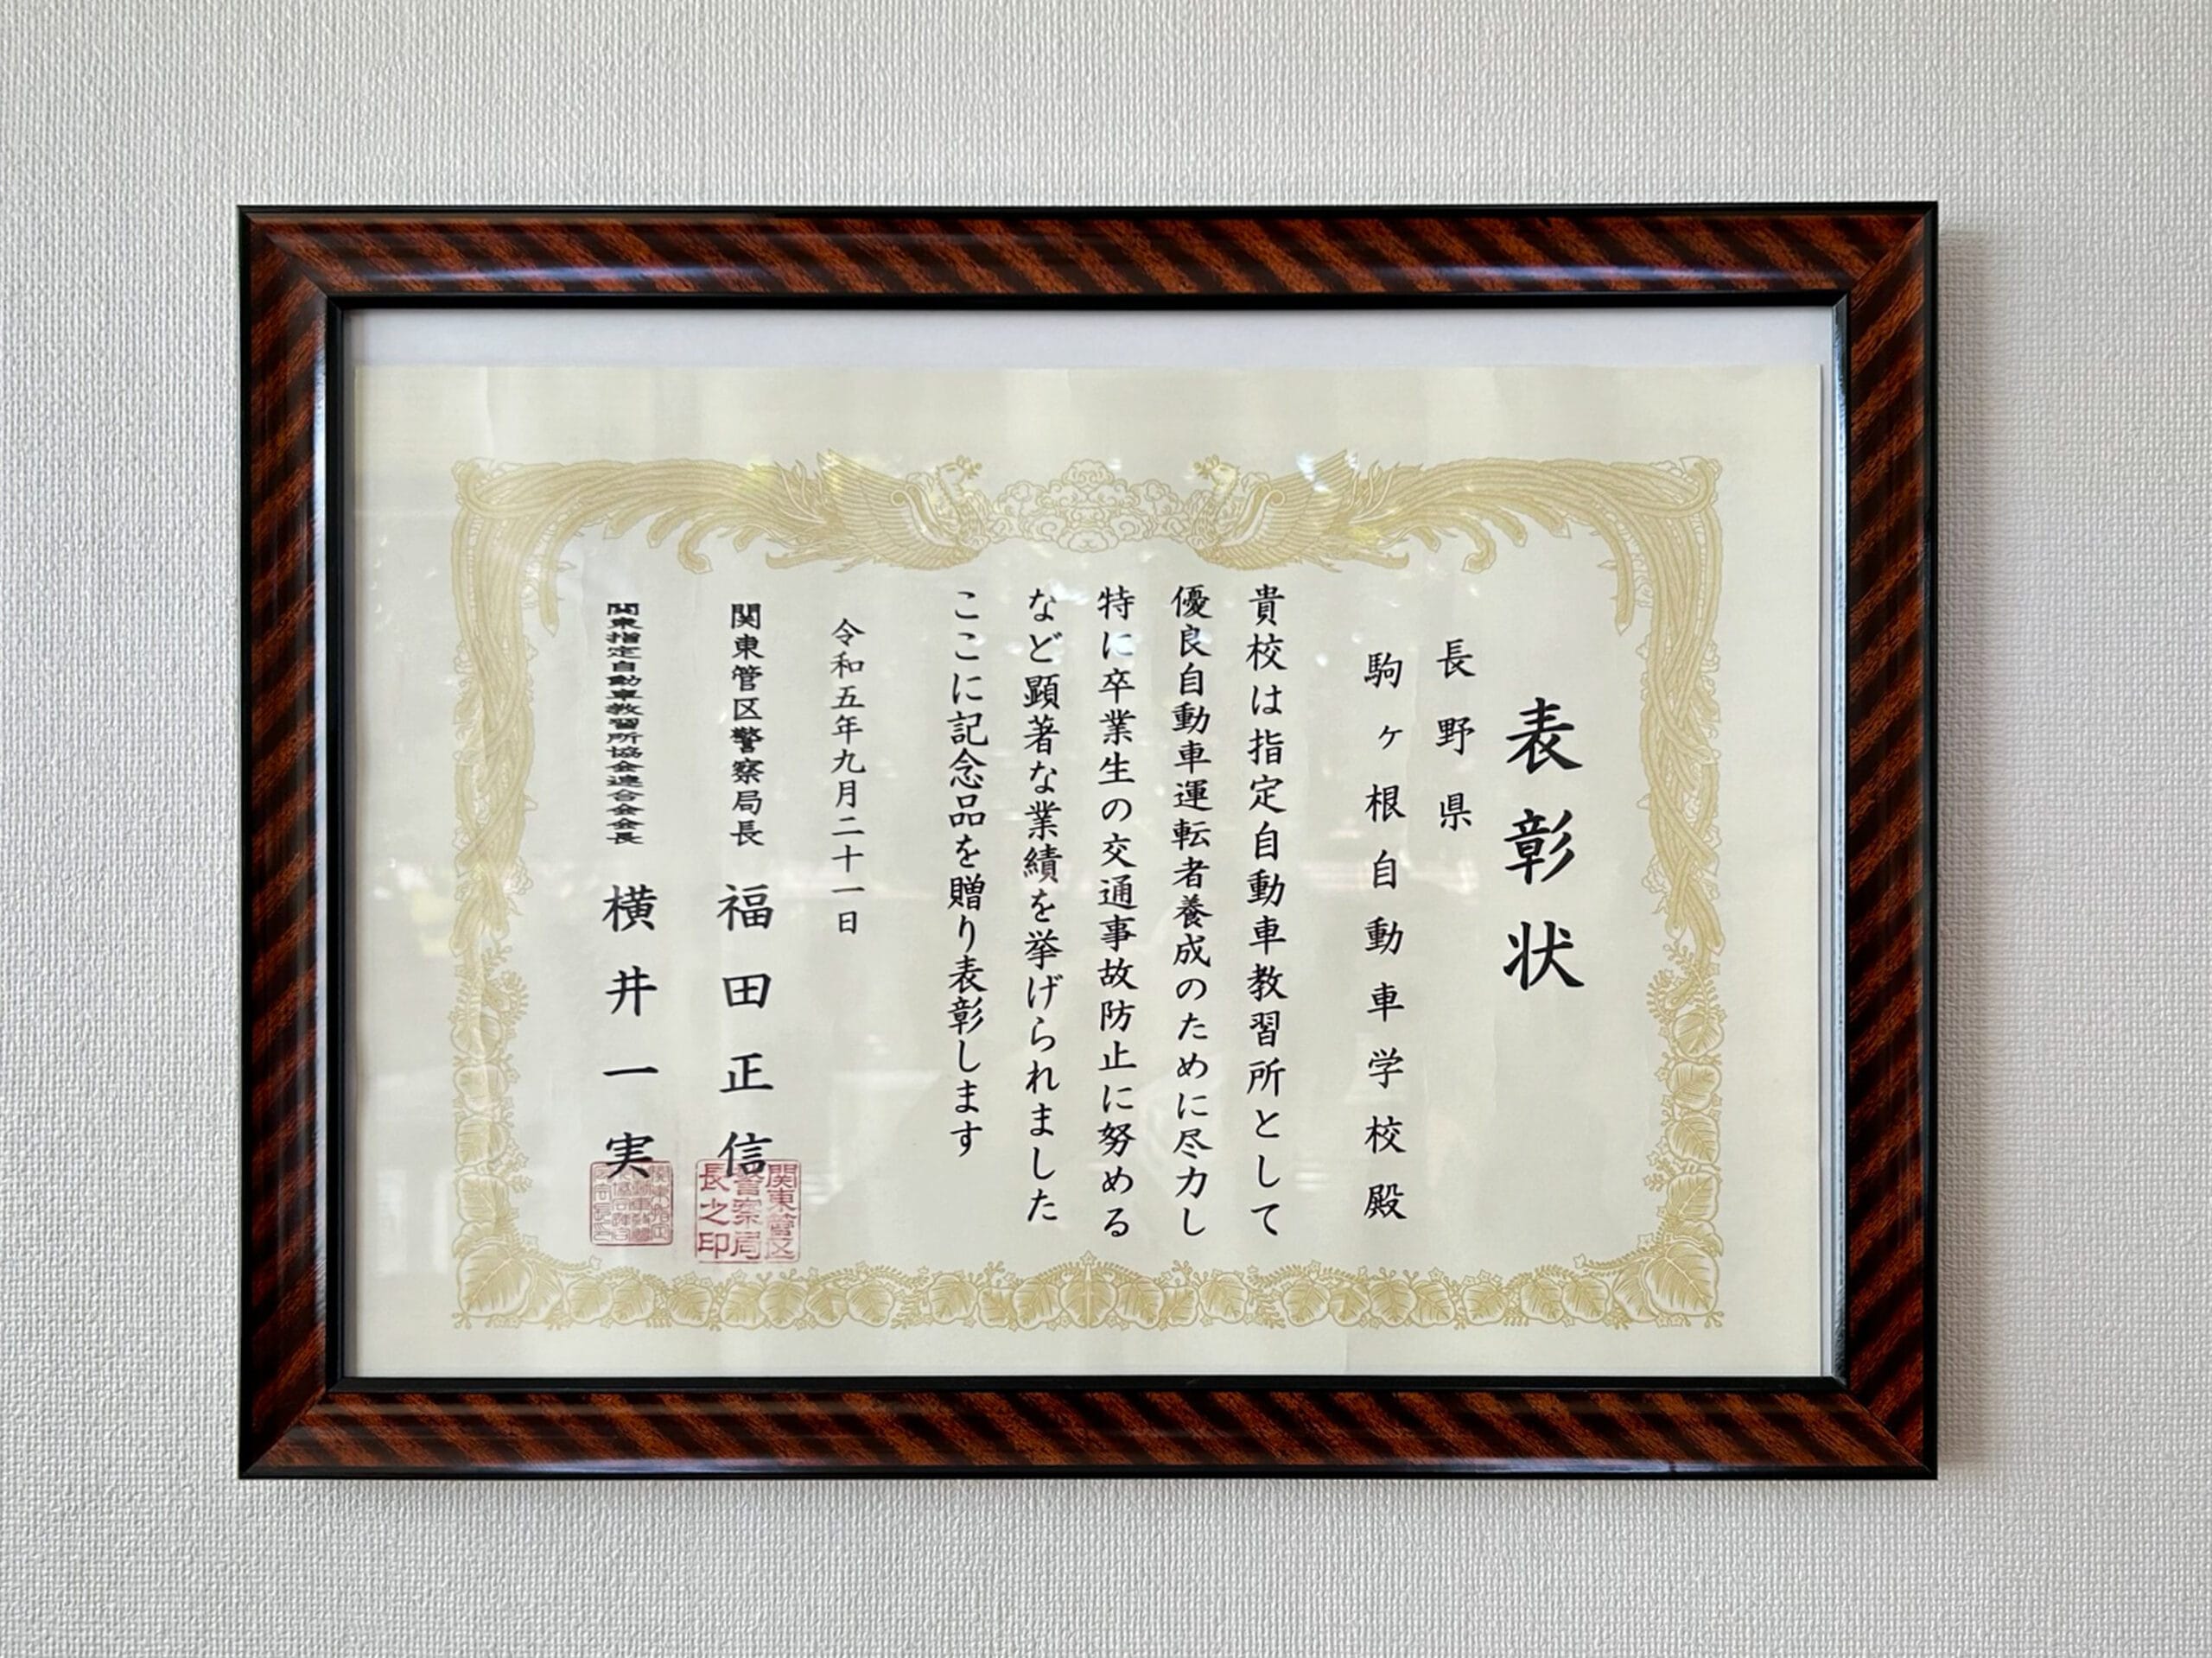 表彰状
長野県
駒ヶ根自動車学校殿
貴校は指定自動車教習所として
優良自動車運転者養成のために尽力し
特に卒業生の交通事故防止に努める
など顕著な業績を挙げられました
ここに記念品を贈り表彰します
令和五年九月二十一日
関東管区警察局長 福田正信
関東管区警察局長之印
関東指定自動車教習所協会連合会会長 横井一実